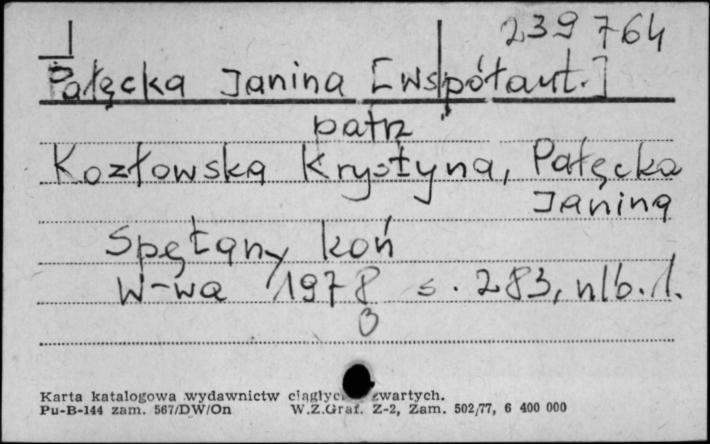 239 764
Pałęcka Janina [współaut.]
patrz
Kozłowska Krystyna, Pałęcka
Janina
Spętany koń
W-wa 1978 s. 283, nlb. 1.
Karta katalogowa wydawnictw zwartych.
Pu-B-144 zam. 567/DW/On W.Z.Graf. Z-2, Zam. 502/77, 6 400 000